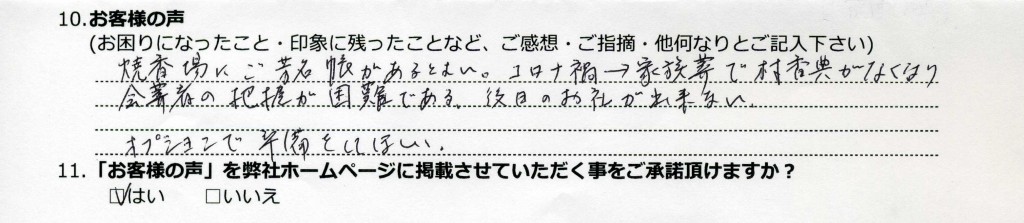 10.お客様の声
(お困りになったこと・印象に残ったことなど、ご感想・ご指摘・他何なりとご記入下さい)
焼香場にご芳名帳があるとよい。コロナ禍→家族葬で村香典がなくなり
会葬者の把握が困難である。後日のお礼が出来ない。
オプションで準備をしてほしい。
11.「お客様の声」を弊社ホームページに掲載させていただく事をご承諾頂けますか？
☑はい □いいえ